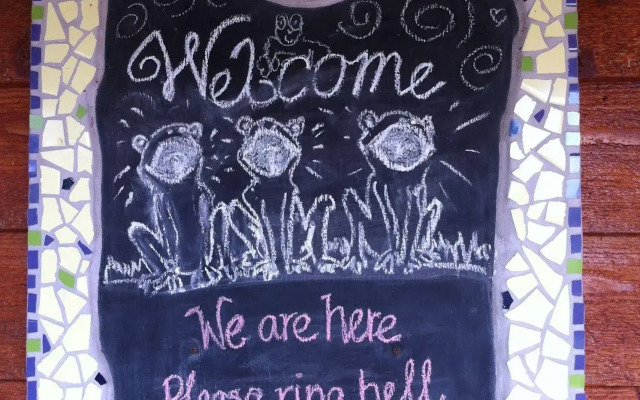 Welcome
We are here
Please ring bell